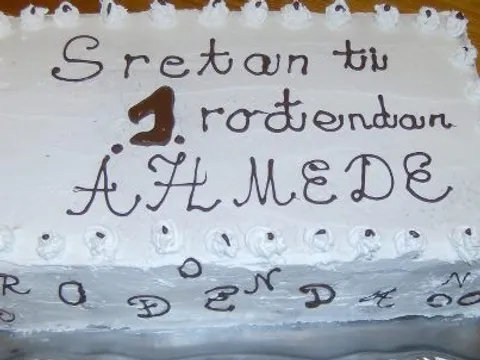 Sretan ti
1. rođendan
AHMEDE
ROĐENDAN